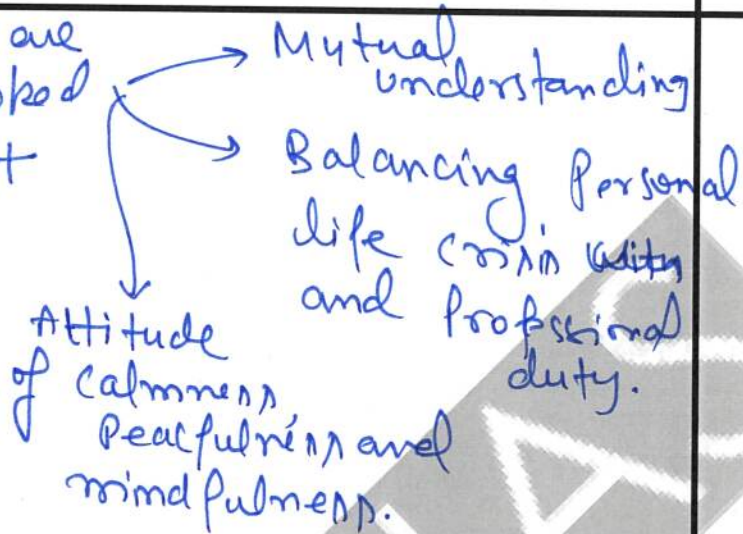 are
Mutual
understanding
Balancing Personal
life crisis
and Profssional
duty.
Attitude
of calmness,
Peacfulness and
mindfulness.
IAS